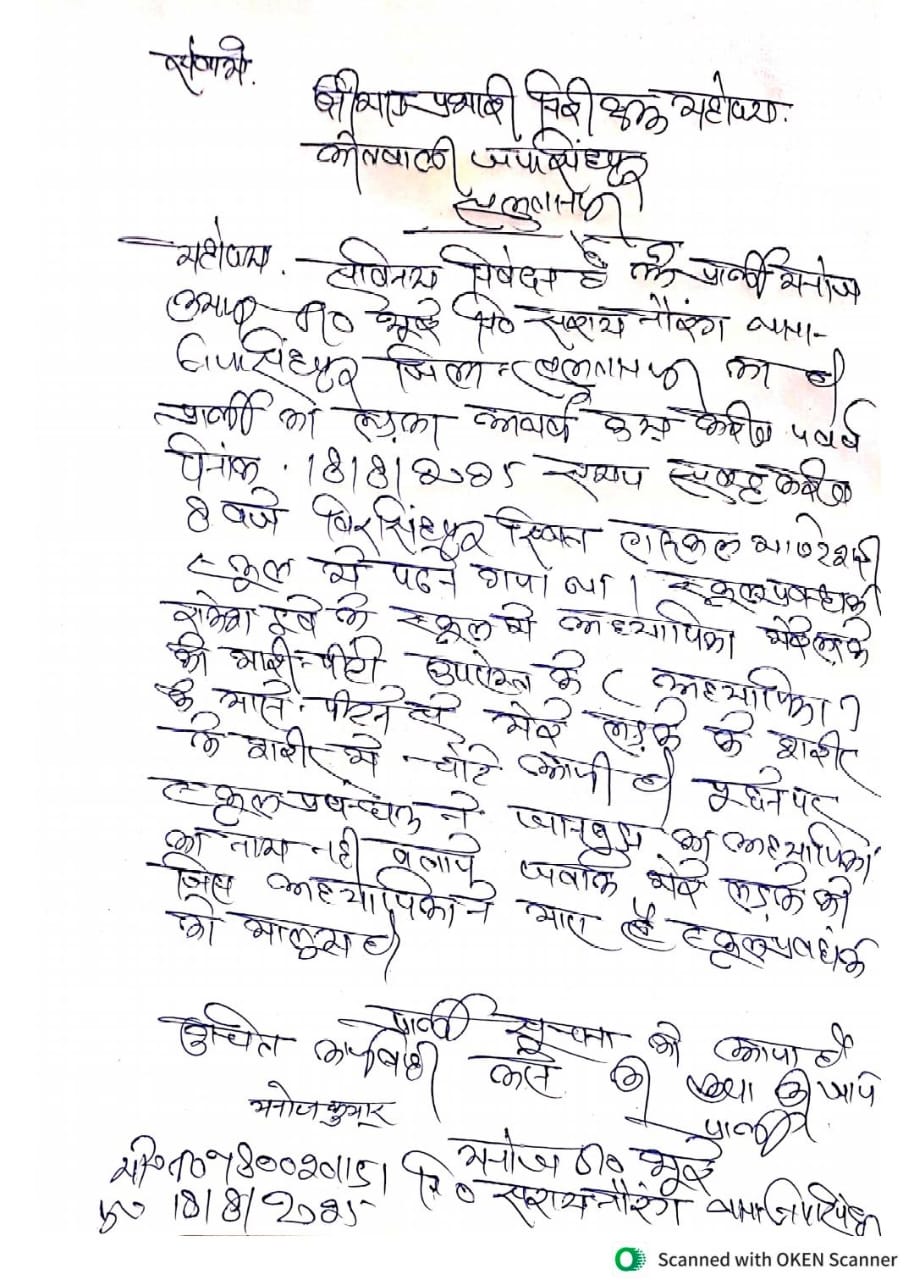 सेवामे.
श्रीमान प्रभारी निरीक्षक महोदय.
कोतवाली जयसिंहपुर
सुलतानपुर
महोदय. सविनय निवेदन है की प्रार्थी मनोज
कुमार S/O भुई नि० सराय नौरंग थाना-
जयसिंहपुर जिला - सुलतानपुर का है
प्रार्थी का लड़का उम्र करीब 5 वर्ष
दिनांक . 18/8/2025 समय सुबह करीब
8 बजे बिरसिंहपुर स्थित माण्टेश्वरी
स्कूल मे पढने गया था । स्कूल प्रबन्धक
दुबे के स्कूल मे अध्यापिका मेरे लड़के
को मारी-पीटी उपरोक्त के ( अध्यापिका )
के मारने पीटने से मेरे लड़के के शरीर
के शरीर मे चोटे आयी है पूछने पर
स्कूल प्रबन्धक ने जानबुझ कर अध्यापिका
का नाम नही बताये जबकि मेरे लड़के को
जिस अध्यापिका ने मारा है स्कूल प्रबंधक
को मालुम है
प्रार्थी सूचना को आया है
उचित कार्यवाही करने की कृपा की जाये
मनोज कुमार
प्रार्थी
मनोज S/O भुई
नि० सराय नौरंग थाना जयसिंहपुर
18/8/2025
Scanned with OKEN Scanner